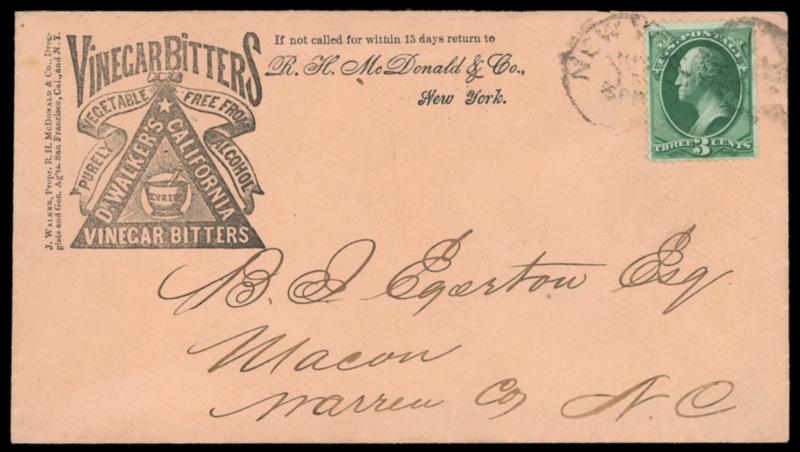 J. WALKER, Propr. R. H. McDONALD & Co., Drug-
gists and Gen. Ag'ts. San Francisco, Cal., and N. Y.
VINEGAR BITTERS
PURELY VEGETABLE FREE FROM ALCOHOL
DR WALKER'S CALIFORNIA
VINEGAR BITTERS
If not called for within 15 days return to
R. H. McDonald & Co.,
New York.
NEW Y
U.S. POSTAGE
THREE 3 CENTS
B. J. Egerton Esq
Macon
Warren Co N. C